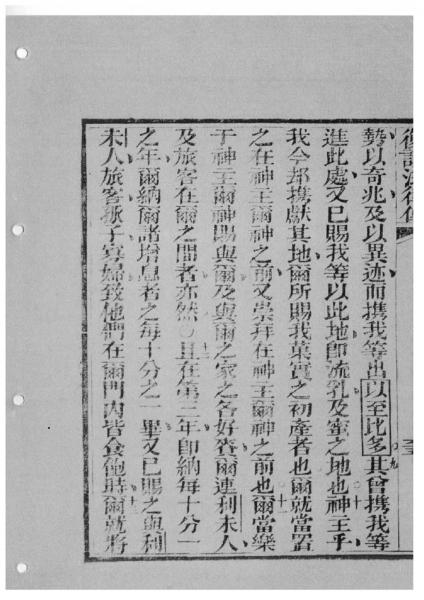 復講法律傳
勢以奇兆及以異迹而携我等出以至比多其曾携我等
進此處又已賜我等以此地即流乳及蜜之地也神主乎
我今却携獻其地爾所賜我菓實之初產者也爾就當置
之在神主爾神之前又崇拜在神主爾神之前也爾當樂
于神主爾神賜與爾及與爾之家之各好啓爾連利未人
及旅客在爾之間者亦然○且在第三年即納每十分一
之年爾納爾諸增息者之每十分之一畢又已賜之與利
未人旅客孤子寡婦致他們在爾門內皆食飽時爾就將